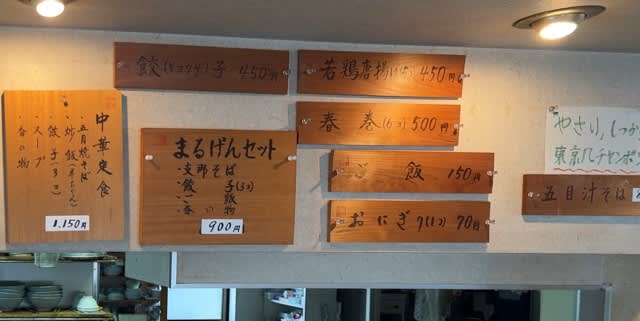 中華定食
・五目焼そば
・炒飯(半ちゃん)
・餃子(3コ)
・スープ
・香の物
1.150円
餃(5コツケ)子 450円
まるげんセット
・支那そば
・餃 子(3コ)
・飯
・香の物
900円
若鶏唐揚(5コ) 450円
春 巻(6コ) 500円
ご 飯 150円
おにぎり(1コ) 70円
やさい,しつか
東京几チャンポン
五目汁そば